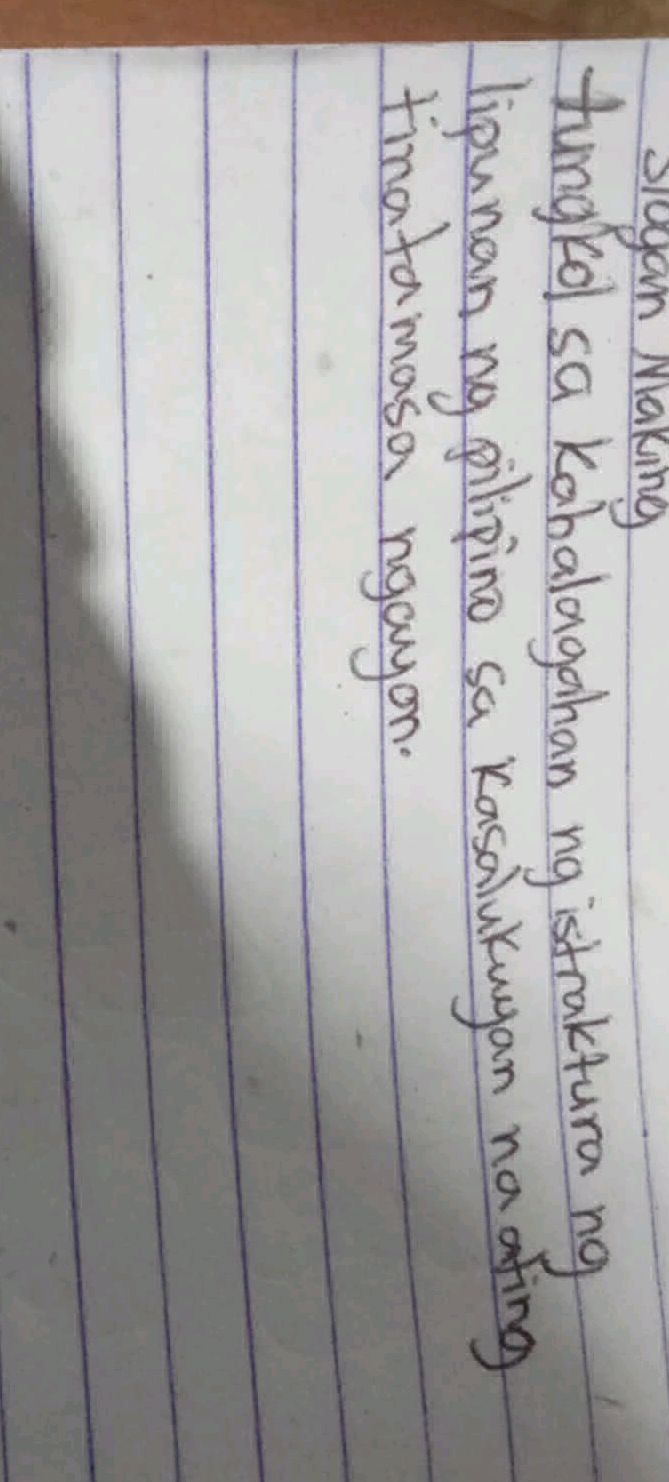 Slogan Making
tungkol sa kahalagahan ng istraktura ng
lipunan ng pilipino sa kasalukuyan na ating
tinatamasa ngayon.